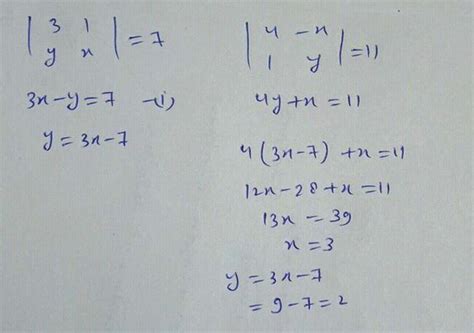 | 3 1 |
| y x | = 7
3x - y = 7 -(i)
y = 3x - 7
| 4 -x |
| 1 y | = 11
4y + x = 11
4(3x - 7) + x = 11
12x - 28 + x = 11
13x = 39
x = 3
y = 3x - 7
= 9 - 7 = 2